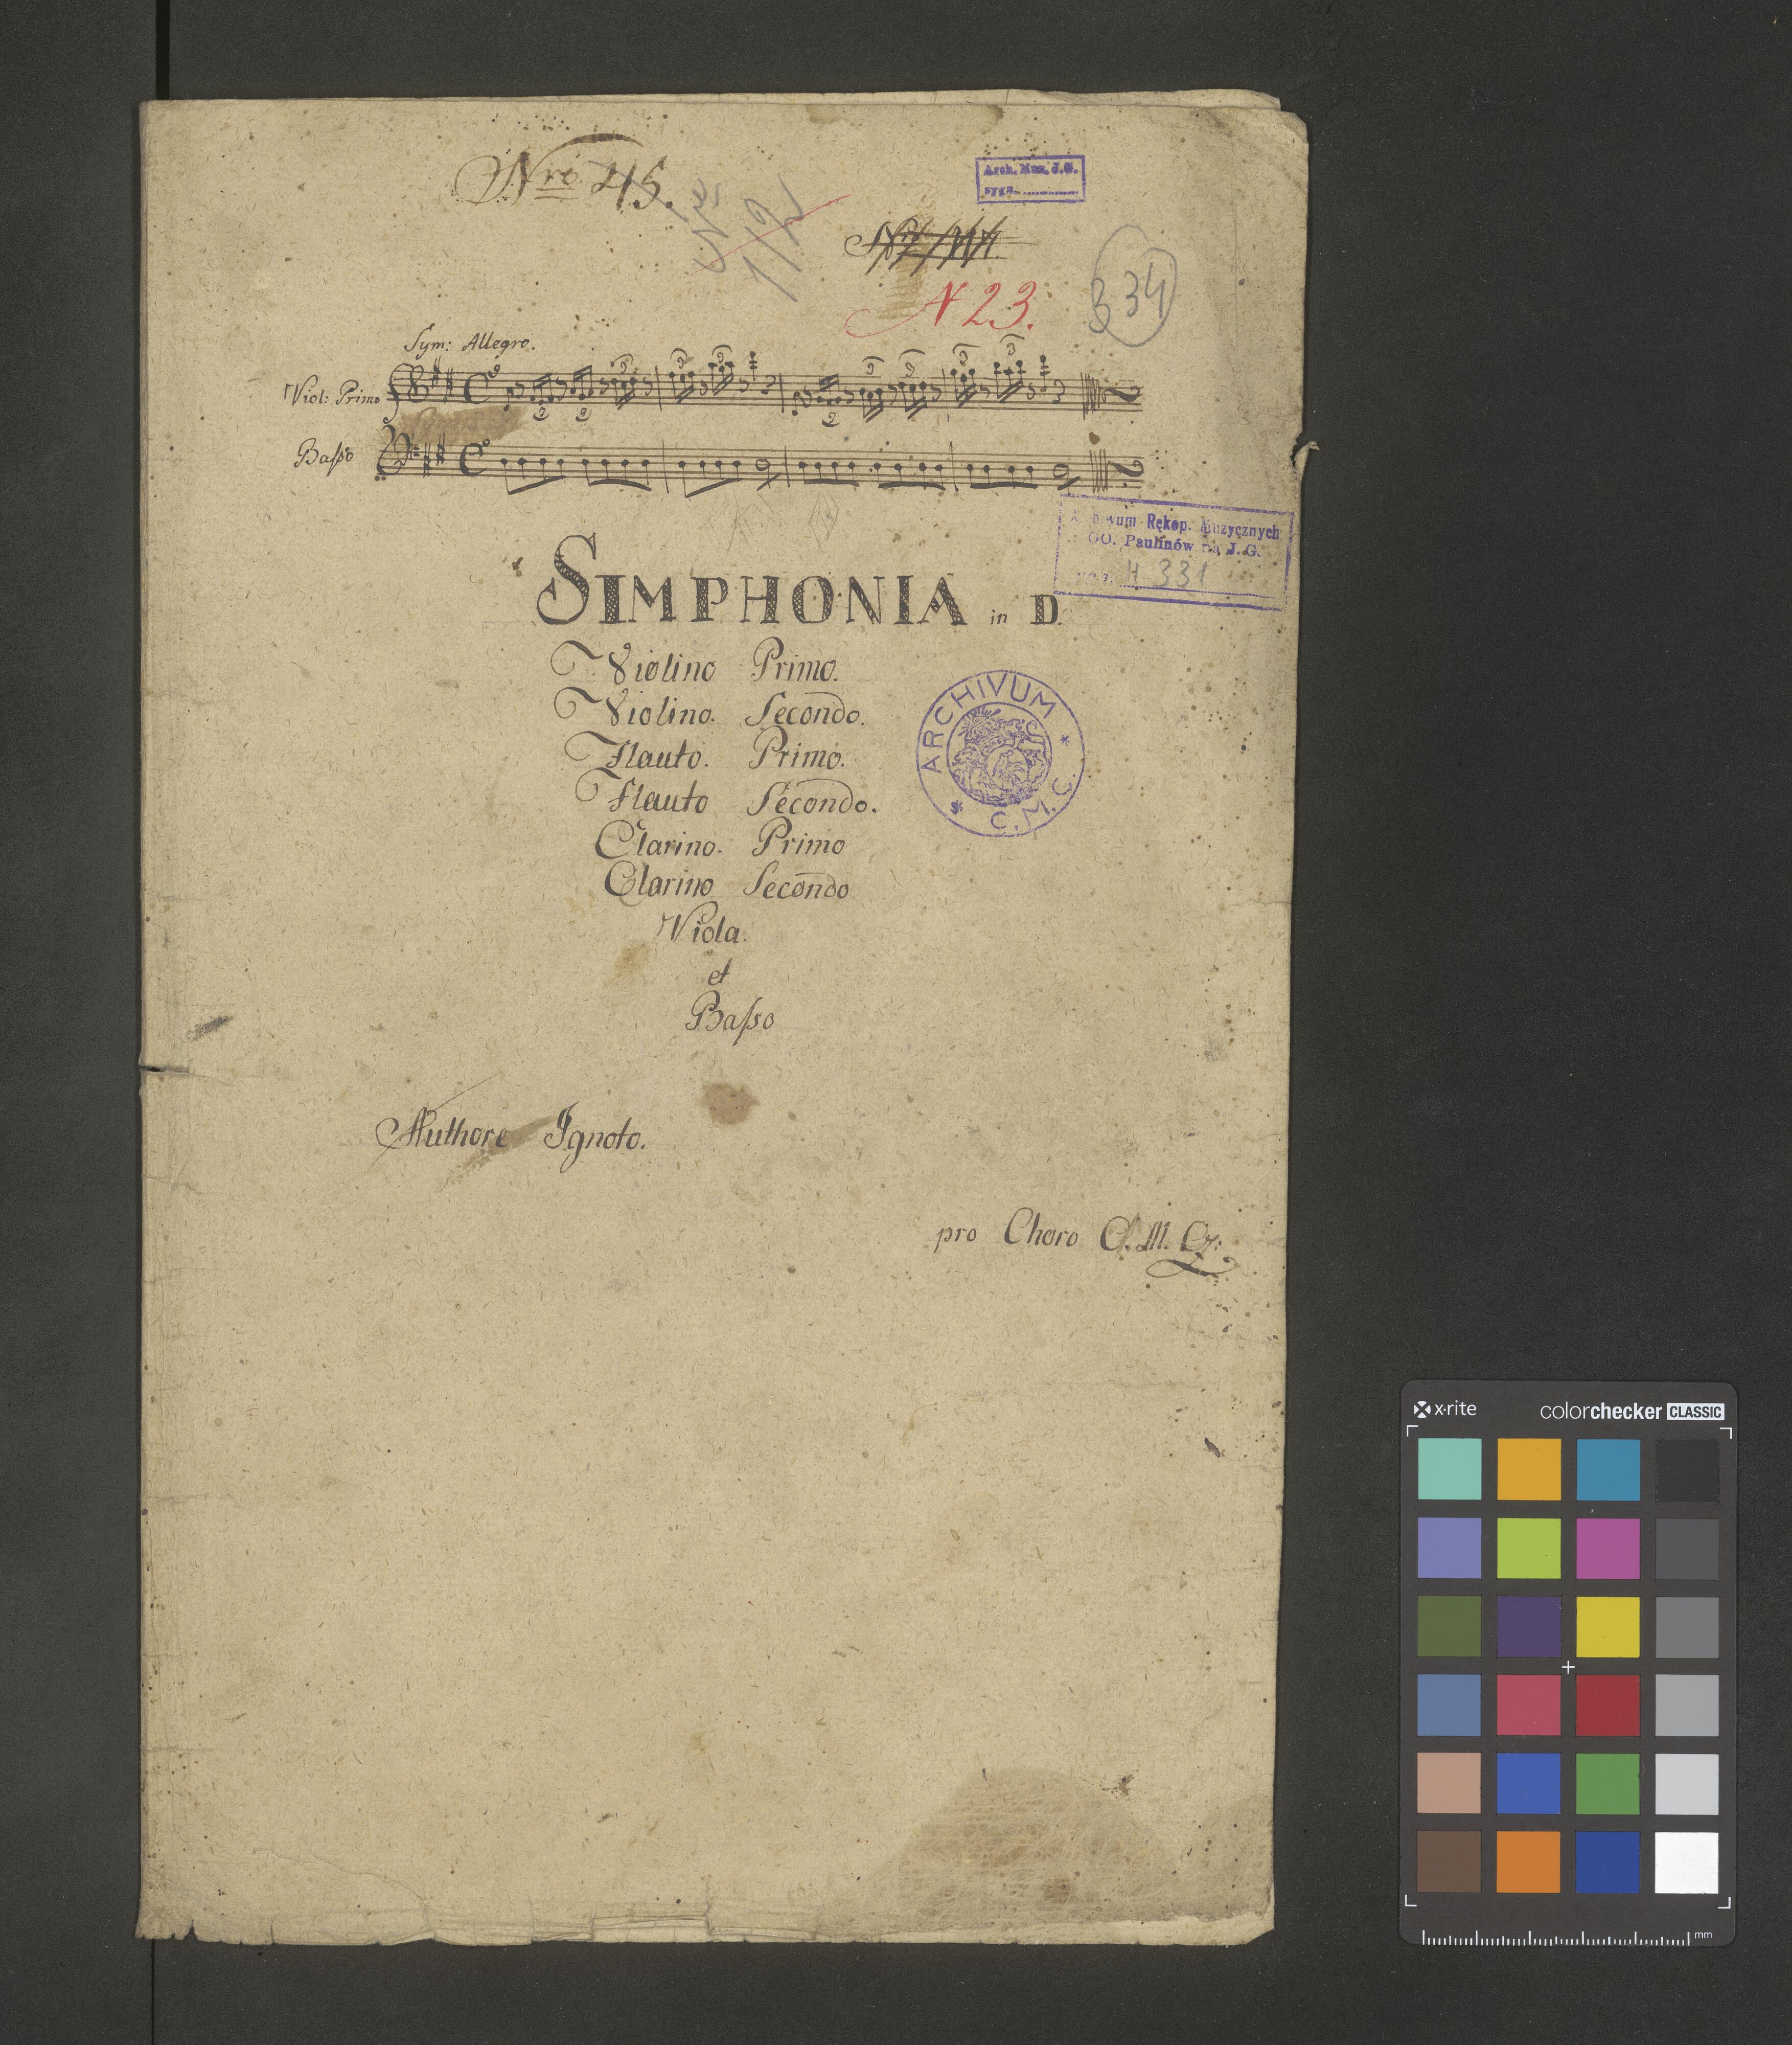 Nro 45.
Nro
112
Arch. Muz. J.G.
sygn.
N 23.
334
Sym: Allegro.
Viol: Primo
3 3 3 3 3 3 3
2 2 2
Baſso
Archivum Rękop. Muzycznych
OO. Paulinów na J. G.
H 331
SIMPHONIA in D.
Violino Primo.
Violino. Secondo.
Flauto. Primo.
Flauto Secondo.
Clarino. Primo
Clarino Secondo
Viola.
et
Baſso
ARCHIVUM * C.M.C. *
Authore Ignoto.
pro Choro C. M. Cz:
x·rite
colorchecker CLASSIC
mm